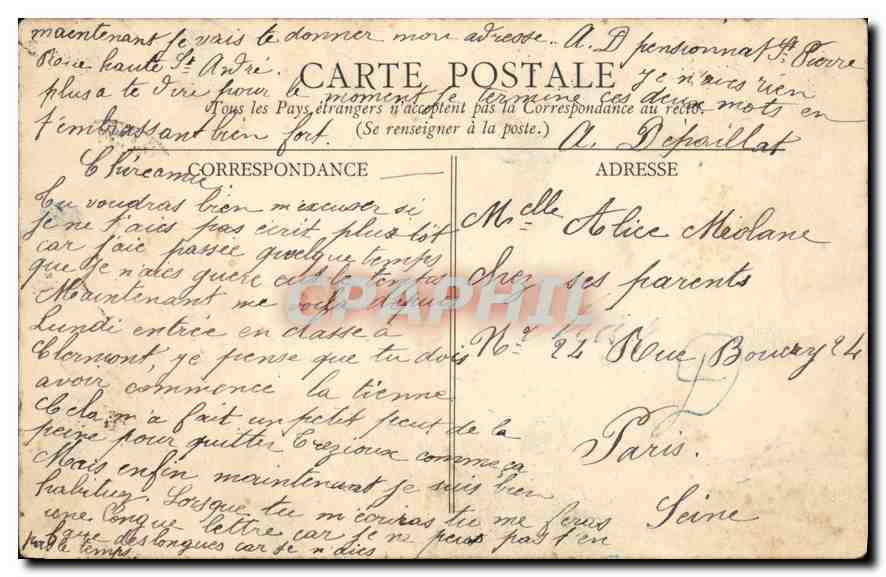 maintenant je vais te donner mon adresse. A. D pensionnat St Pierre
Rue haute St André. Je n'aies rien
CARTE POSTALE
plus a te dire pour le moment je termine ces deux mots en
Tous les Pays étrangers n'acceptent pas la Correspondance au recto.
t'embrassant bien fort.
(Se renseigner à la poste.)
A. Depaillat
CORRESPONDANCE
ADRESSE
Chère amie
Tu voudras bien m'excuser si
je ne t'aies pas écrit plus tôt
car j'aie passée quelque temps
que je n'aies guère eut le temps
Maintenant me voila depuis
Lundi entrée en classe à
Clermont, je pense que tu dois
avoir commencé la tienne
Cela m'a fait un petit peut de la
peine pour quitter Trezioux comme ça
Mais enfin maintenant je suis bien
habituez. Lorsque tu m'écriras tu me feras
une longue lettre car je ne peux pas t'en
faire des longues car je n'aies
pas le temps.
Melle Alice Méolane
chez ses parents
No 24 Rue Boucry 24
Paris.
Seine
CPAPHIL